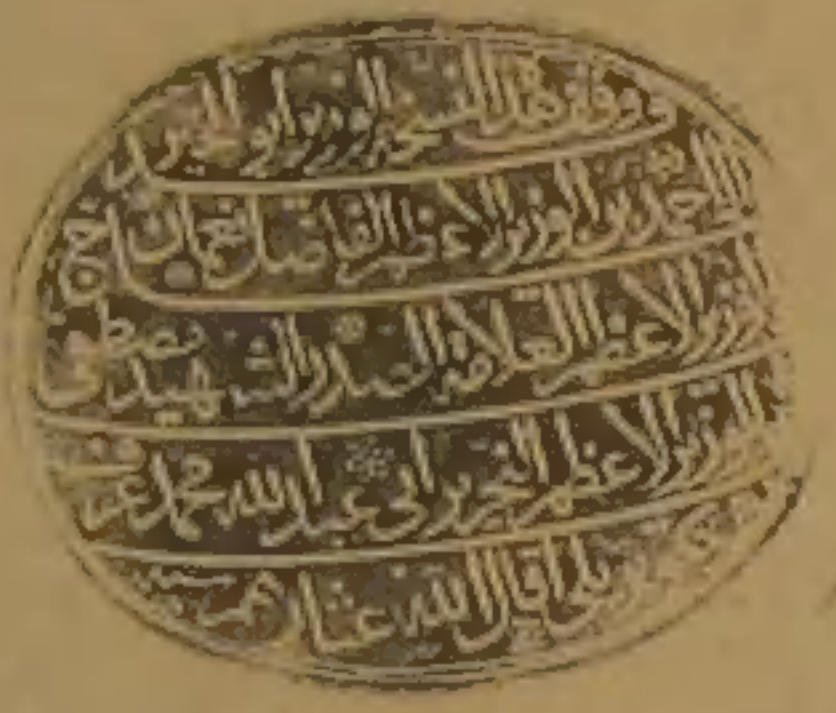 وقف هذا الشيخ الوزير ابو الخير
احمد بن الوزير الاعظم الفاضل نعمان بن
الوزير الاعظم العلامة الصدر الشهيد مصطفى
الوزير الاعظم النحرير ابي عبد الله محمد عرف
اقال الله عثار